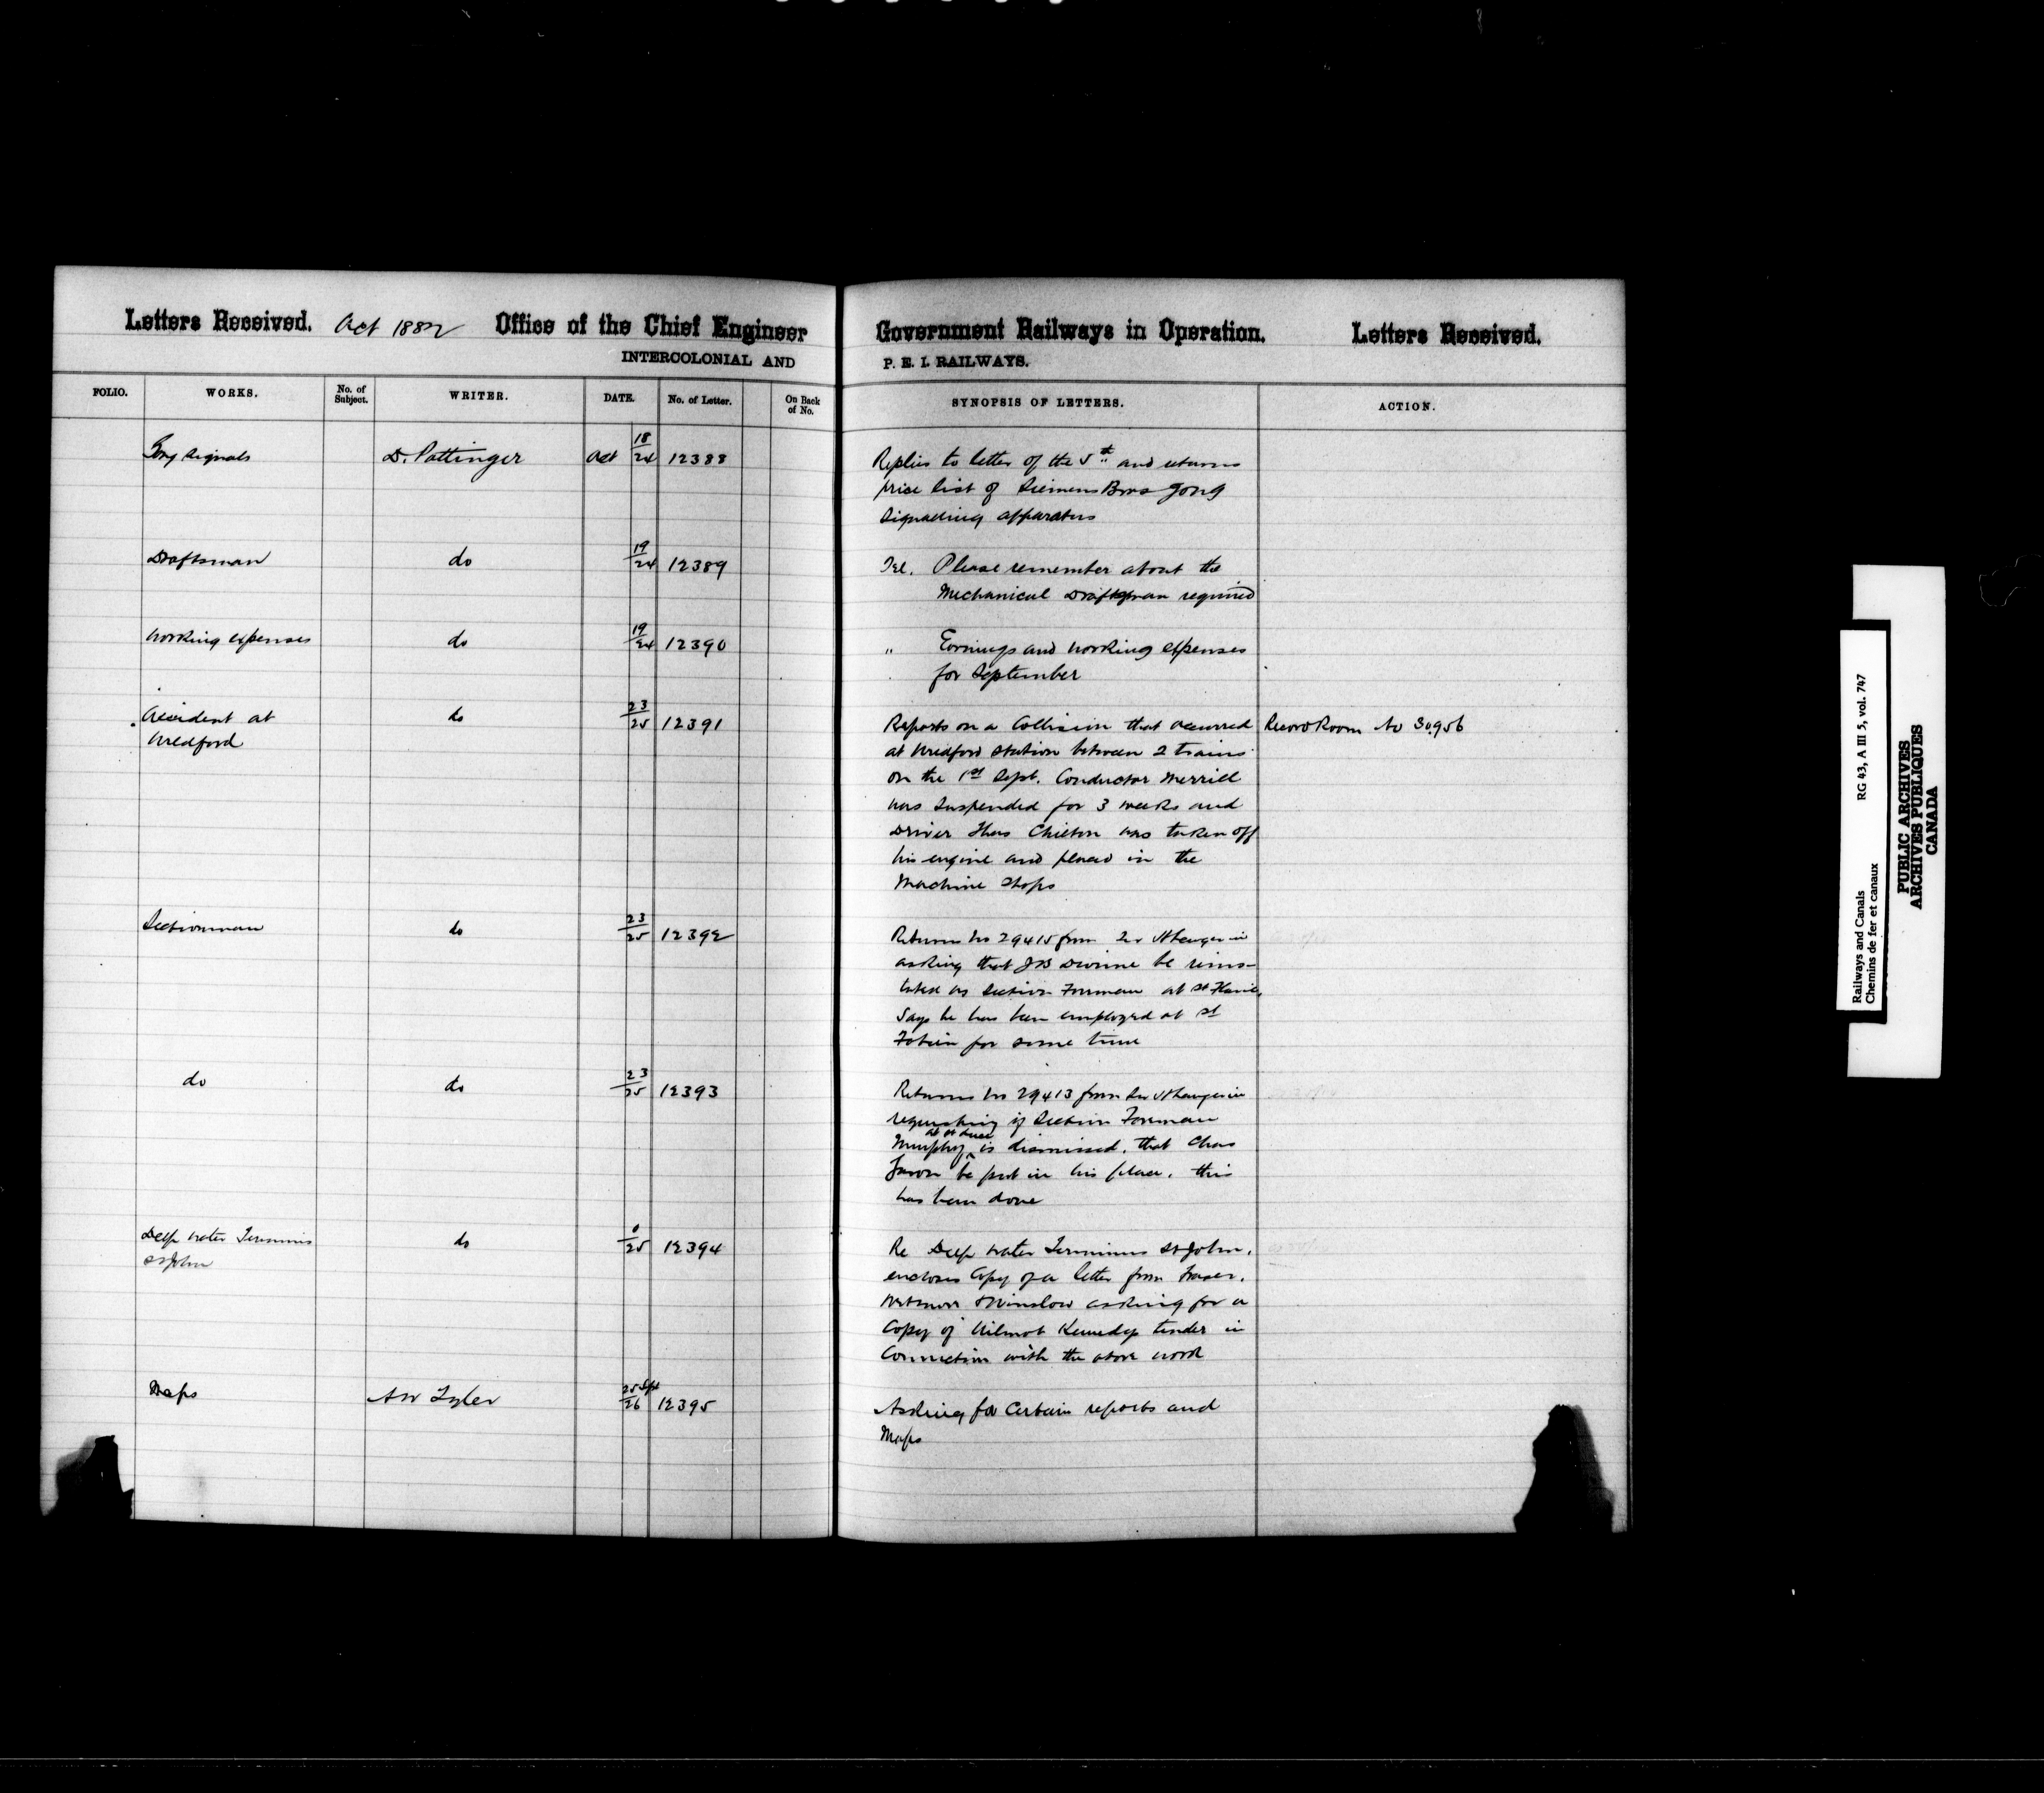 Letters Received. Oct 1882 Office of the Chief Engineer Government Railways in Operation. Letters Received.
INTERCOLONIAL AND P. E. I. RAILWAYS.
FOLIO. WORKS. No. of Subject. WRITER. DATE. No. of Letter. On Back of No. SYNOPSIS OF LETTERS. ACTION.
Gong Signals D. Pottinger Oct 18/24 12388 Replies to letter of the 5th and returns
price list of Siemens Bros gong
Signalling apparatus
Draftsman do 19/24 12389 Tel. Please remember about the
Mechanical Draftsman required
Working expenses do 19/24 12390 " Earnings and working expenses
for September
Accident at do 23/25 12391 Reports on a Collision that occurred Record Room No 30956
Medford at Medford Station between 2 trains
on the 1st Sept. Conductor Merrill
was Suspended for 3 weeks and
Driver Thos Chilton was taken off
his engine and placed in the
Machine Shops
Sectionman do 23/25 12392 Returns No 29415 from
asking that J B be reins-
tated as Section Foreman at St Flavie,
Says he has been employed at St
Fabien for some time
do do 23/25 12393 Returns No 29413 from
requesting if Section Foreman
Murphy at St Luce is dismissed, that Chas
be put in his place, this
has been done
Deep water Terminus do 0/25 12394 Re Deep water Terminus St John,
St John encloses Copy of a letter from Fraser,
Wetmore & Winslow asking for a
Copy of Wilmot Kennedys tender in
Connection with the above work
Maps AW Tyler 25 Sept/26 12395 Asking for Certain reports and
Maps
Railways and Canals RG 43, A III 5, vol. 747
Chemins de fer et canaux
PUBLIC ARCHIVES
ARCHIVES PUBLIQUES
CANADA